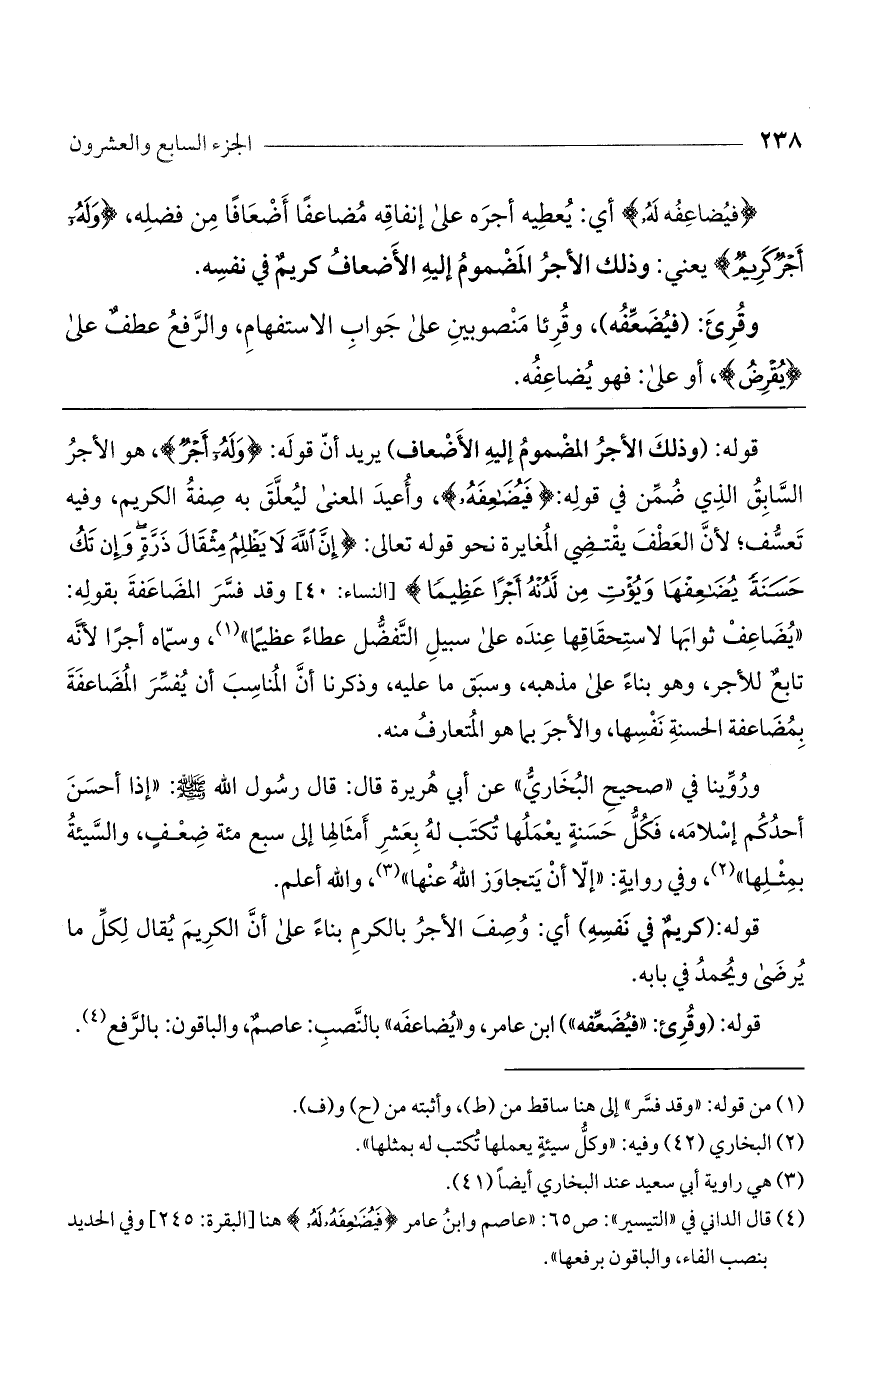 ٢٣٨ الجزء السابع والعشرون
﴿فيُضاعِفُه لَهُۥ﴾ أي: يُعطِيه أجرَه علىٰ إنفاقِه مُضاعفًا أَضْعَافًا مِن فضلِه، ﴿وَلَهُۥٓ
أَجْرٌ كَرِيمٌ﴾ يعني: وذلك الأجرُ المَضْمومُ إليهِ الأَضعافُ كريمٌ في نفسِه.
وقُرِئَ: (فيُضَعِّفُه)، وقُرِئا مَنْصوبينِ علىٰ جَوابِ الاستفهامِ، والرَّفعُ عطفٌ علىٰ
﴿يُقْرِضُ﴾، أو علىٰ: فهو يُضاعِفُه.
قوله: (وذلكَ الأجرُ المضْمومُ إليهِ الأَضْعاف) يريد أنّ قولَه: ﴿وَلَهُۥٓ أَجْرٌ﴾، هو الأجرُ
السَّابِقُ الذِي ضُمِّن في قولِه:﴿فَيُضَٰعِفَهُۥ﴾، وأُعيدَ المعنىٰ ليُعلَّقَ به صِفةُ الكريم، وفيه
تَعسُّف؛ لأنَّ العَطْفَ يقْتـضِي المُغايرة نحو قوله تعالى: ﴿إِنَّ ٱللَّهَ لَا يَظْلِمُ مِثْقَالَ ذَرَّةٍۖ وَإِن تَكُ
حَسَنَةً يُضَٰعِفْهَا وَيُؤْتِ مِن لَّدُنْهُ أَجْرًا عَظِيمًا﴾ [النساء: ٤٠] وقد فسَّرَ المضَاعَفةَ بقولِه:
«يُضَاعِفْ ثوابَها لاستِحقَاقِها عِندَه علىٰ سبيلِ التَّفضُّل عطاءً عظيمًا»(١)، وسمّاه أجرًا لأنَّه
تابعٌ للأجر، وهو بناءً علىٰ مذهبه، وسبَق ما عليه، وذكرنا أنَّ المُناسِبَ أن يُفسِّرَ المُضَاعفةَ
بِمُضَاعفة الحسنةِ نَفْسِها، والأجرَ بما هو المُتعارفُ منه.
ورُوِّينا في «صحيحِ البُخَاريُّ» عن أبي هُريرة قال: قال رسُول الله ﷺ: «إذا أحسَنَ
أحدُكُم إسْلامَه، فَكُلُّ حَسَنةٍ يعْمَلُها تُكتَب لهُ بِعَشرِ أَمثَالِها إلى سبع مئة ضِعْـفٍ، والسَّيئةُ
بمِثْـلِها»(٢)، وفي روايةٍ: «إلّا أنْ يَتجاوَز اللهُ عنْها»(٣)، والله أعلم.
قوله:(كريمٌ في نَفسِهِ) أي: وُصِفَ الأجرُ بالكرمِ بناءً علىٰ أنَّ الكرِيمَ يُقال لِكلِّ ما
يُرضَىٰ ويُحمدُ في بابه.
قوله: (وقُرِئ: «فيُضَعِّفه») ابن عامر، و«يُضاعفَه» بالنَّصبِ: عاصمٌ، والباقون: بالرَّفع(٤).
(١) من قوله: «وقد فسَّر» إلى هنا ساقط من (ط)، وأثبته من (ح) و(ف).
(٢) البخاري (٤٢) وفيه: «وكلُّ سيئةٍ يعملها تُكتب له بمثلها».
(٣) هي راوية أبي سعيد عند البخاري أيضاً (٤١).
(٤) قال الداني في «التيسير»: ص٦٥: «عاصم وابنُ عامر ﴿فَيُضَٰعِفَهُۥ لَهُۥ﴾ هنا [البقرة: ٢٤٥] وفي الحديد
بنصب الفاء، والباقون برفعها».